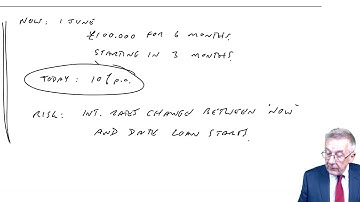 NOW: 1 JUNE
£100.000 FOR 6 MONTHS
STARTING IN 3 MONTHS
TODAY: 10% p.a.
RISK: INT. RATES CHANGE BETWEEN "NOW"
AND DATE LOAN STARTS.